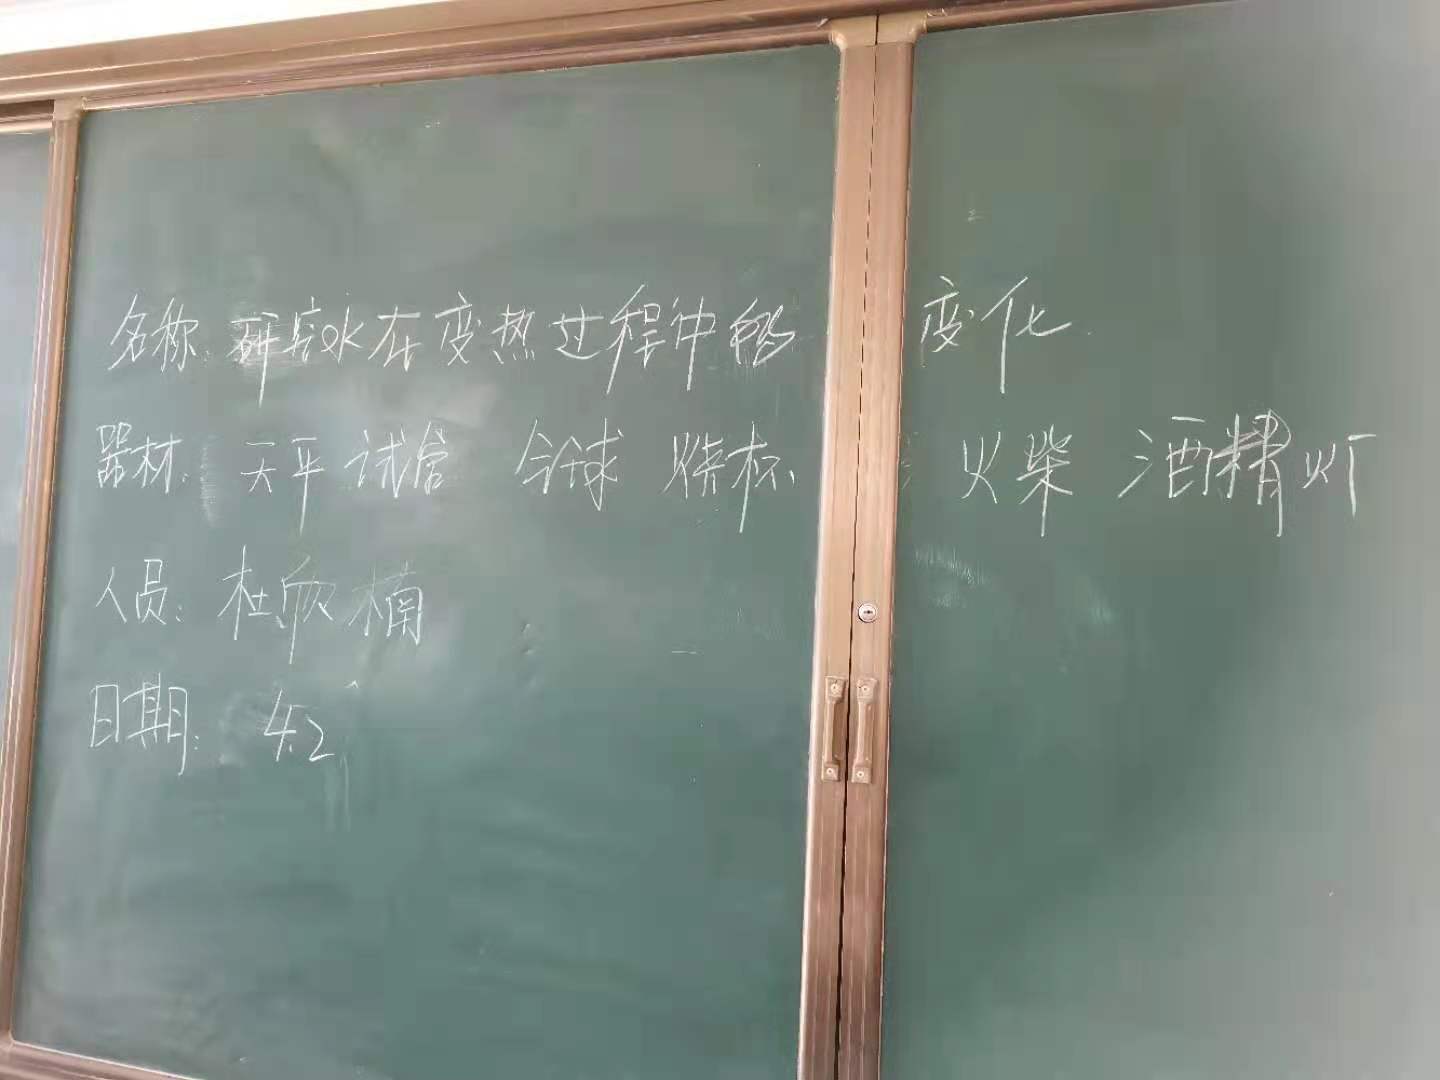 名称:研究水在变热过程中的变化
器材:天平 试管 气球 烧杯 火柴 酒精灯
人员:杜 楠
日期: 4.2